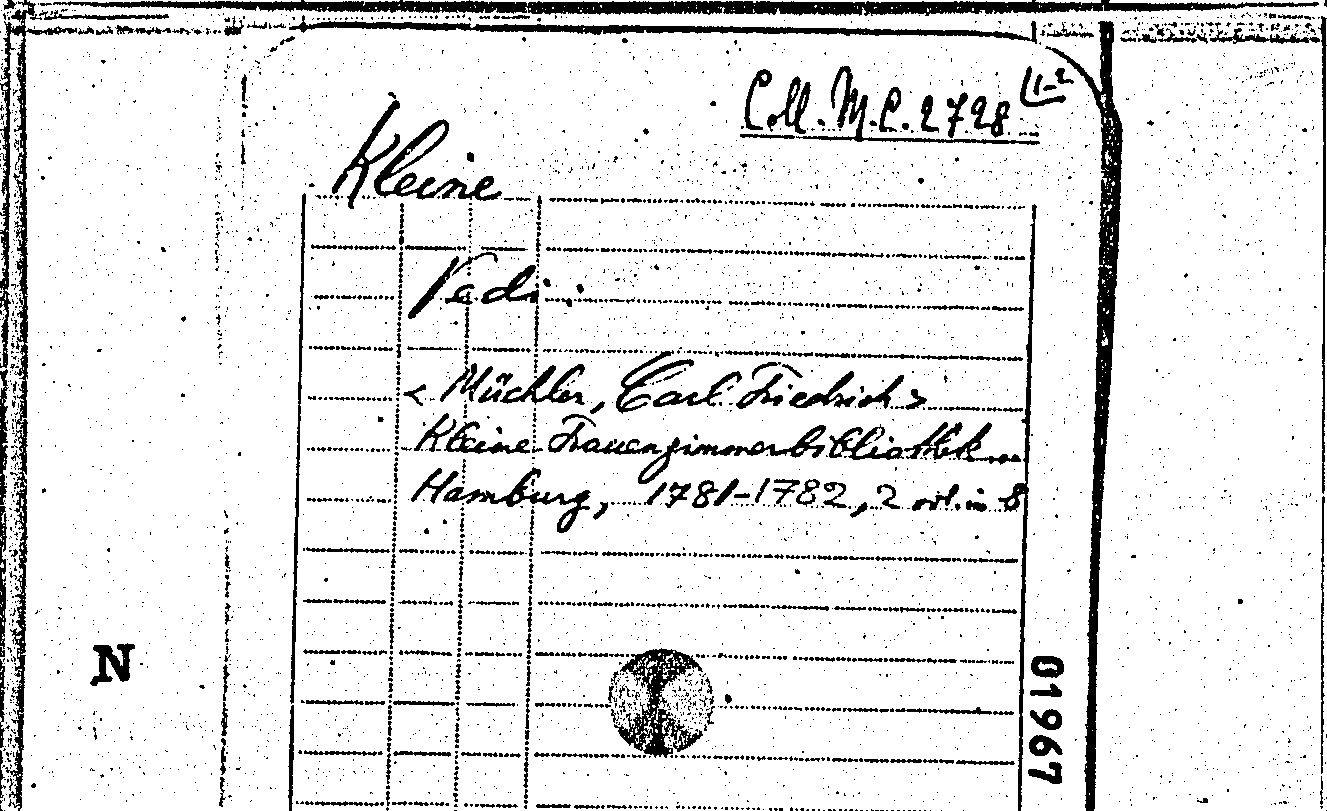 Coll. M.C. 2728 (1-2
Kleine
Vedi:
< Müchler, Carl Friedrich >
Kleine Frauenzimmerbibliothek...
Hamburg, 1781-1782, 2 vol. in 8
N
01967